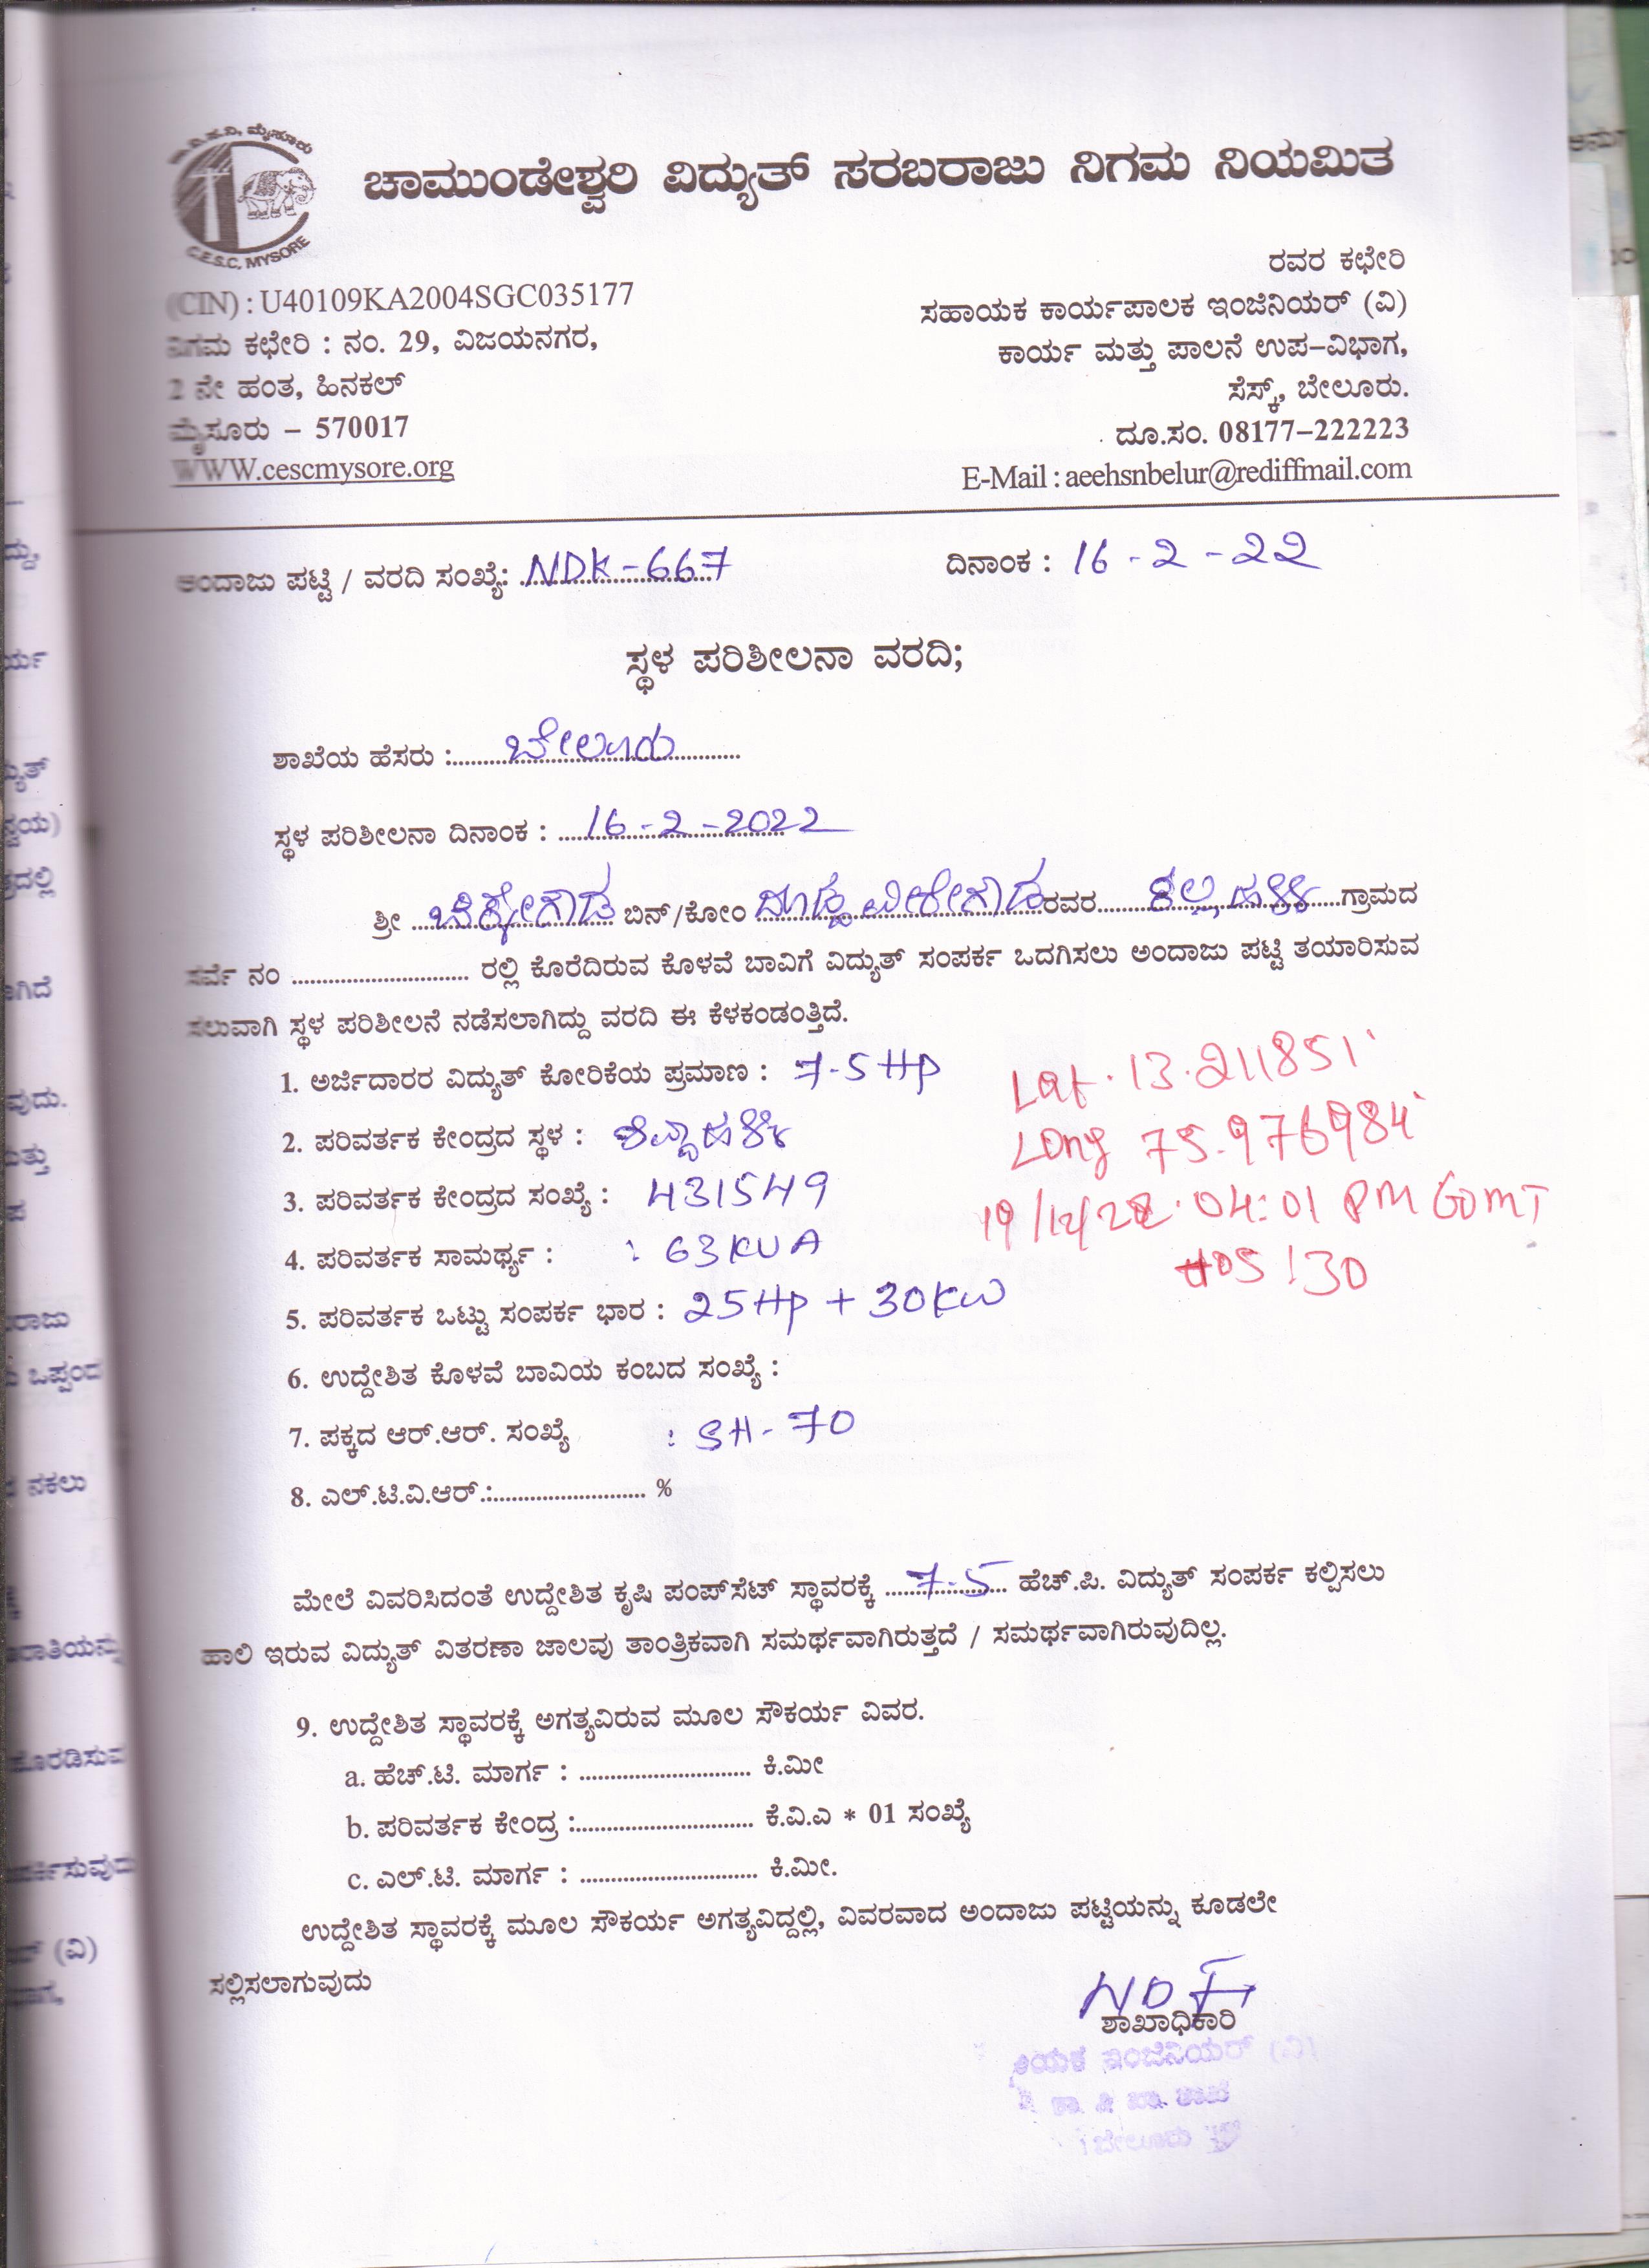 ಚಾಮುಂಡೇಶ್ವರಿ ವಿದ್ಯುತ್ ಸರಬರಾಜು ನಿಗಮ ನಿಯಮಿತ
C.E.S.C. MYSORE
(CIN) : U40109KA2004SGC035177
ನಿಗಮ ಕಛೇರಿ : ನಂ. 29, ವಿಜಯನಗರ,
2 ನೇ ಹಂತ, ಹಿನಕಲ್
ಮೈಸೂರು – 570017
WWW.cescmysore.org
ರವರ ಕಛೇರಿ
ಸಹಾಯಕ ಕಾರ್ಯಪಾಲಕ ಇಂಜಿನಿಯರ್ (ವಿ)
ಕಾರ್ಯ ಮತ್ತು ಪಾಲನೆ ಉಪ–ವಿಭಾಗ,
ಸೆಸ್ಕ್, ಬೇಲೂರು.
ದೂ.ಸಂ. 08177–222223
E-Mail : aeehsnbelur@rediffmail.com
ಅಂದಾಜು ಪಟ್ಟಿ / ವರದಿ ಸಂಖ್ಯೆ: NDK-667 ದಿನಾಂಕ : 16-2-22
ಸ್ಥಳ ಪರಿಶೀಲನಾ ವರದಿ;
ಶಾಖೆಯ ಹೆಸರು : ಬೇಲೂರು
ಸ್ಥಳ ಪರಿಶೀಲನಾ ದಿನಾಂಕ : 16-2-2022
ಶ್ರೀ ಬಿನ್/ಕೋಂ ರವರ ಗ್ರಾಮದ
ಸರ್ವೆ ನಂ .......................... ರಲ್ಲಿ ಕೊರೆದಿರುವ ಕೊಳವೆ ಬಾವಿಗೆ ವಿದ್ಯುತ್ ಸಂಪರ್ಕ ಒದಗಿಸಲು ಅಂದಾಜು ಪಟ್ಟಿ ತಯಾರಿಸುವ
ಸಲುವಾಗಿ ಸ್ಥಳ ಪರಿಶೀಲನೆ ನಡೆಸಲಾಗಿದ್ದು ವರದಿ ಈ ಕೆಳಕಂಡಂತ್ತಿದೆ.
1. ಅರ್ಜಿದಾರರ ವಿದ್ಯುತ್ ಕೋರಿಕೆಯ ಪ್ರಮಾಣ : 7-5 HP
2. ಪರಿವರ್ತಕ ಕೇಂದ್ರದ ಸ್ಥಳ :
3. ಪರಿವರ್ತಕ ಕೇಂದ್ರದ ಸಂಖ್ಯೆ : 431549
4. ಪರಿವರ್ತಕ ಸಾಮರ್ಥ್ಯ : : 63 KVA
5. ಪರಿವರ್ತಕ ಒಟ್ಟು ಸಂಪರ್ಕ ಭಾರ : 25HP + 30KW
Lat. 13.211851
Long 75.976984
04:01 PM GMT
05:30
6. ಉದ್ದೇಶಿತ ಕೊಳವೆ ಬಾವಿಯ ಕಂಬದ ಸಂಖ್ಯೆ :
7. ಪಕ್ಕದ ಆರ್.ಆರ್. ಸಂಖ್ಯೆ : SH-70
8. ಎಲ್.ಟಿ.ವಿ.ಆರ್.:.......................... %
ಮೇಲೆ ವಿವರಿಸಿದಂತೆ ಉದ್ದೇಶಿತ ಕೃಷಿ ಪಂಪ್‌ಸೆಟ್ ಸ್ಥಾವರಕ್ಕೆ 7-5 ಹೆಚ್.ಪಿ. ವಿದ್ಯುತ್ ಸಂಪರ್ಕ ಕಲ್ಪಿಸಲು
ಹಾಲಿ ಇರುವ ವಿದ್ಯುತ್ ವಿತರಣಾ ಜಾಲವು ತಾಂತ್ರಿಕವಾಗಿ ಸಮರ್ಥವಾಗಿರುತ್ತದೆ / ಸಮರ್ಥವಾಗಿರುವುದಿಲ್ಲ.
9. ಉದ್ದೇಶಿತ ಸ್ಥಾವರಕ್ಕೆ ಅಗತ್ಯವಿರುವ ಮೂಲ ಸೌಕರ್ಯ ವಿವರ.
a. ಹೆಚ್.ಟಿ. ಮಾರ್ಗ : ............................ ಕಿ.ಮೀ
b. ಪರಿವರ್ತಕ ಕೇಂದ್ರ :............................. ಕೆ.ವಿ.ಎ * 01 ಸಂಖ್ಯೆ
c. ಎಲ್.ಟಿ. ಮಾರ್ಗ : ............................. ಕಿ.ಮೀ.
ಉದ್ದೇಶಿತ ಸ್ಥಾವರಕ್ಕೆ ಮೂಲ ಸೌಕರ್ಯ ಅಗತ್ಯವಿದ್ದಲ್ಲಿ, ವಿವರವಾದ ಅಂದಾಜು ಪಟ್ಟಿಯನ್ನು ಕೂಡಲೇ
ಸಲ್ಲಿಸಲಾಗುವುದು
ಶಾಖಾಧಿಕಾರಿ
ಇಂಜಿನಿಯರ್ (ವಿ)
ಬೇಲೂರು